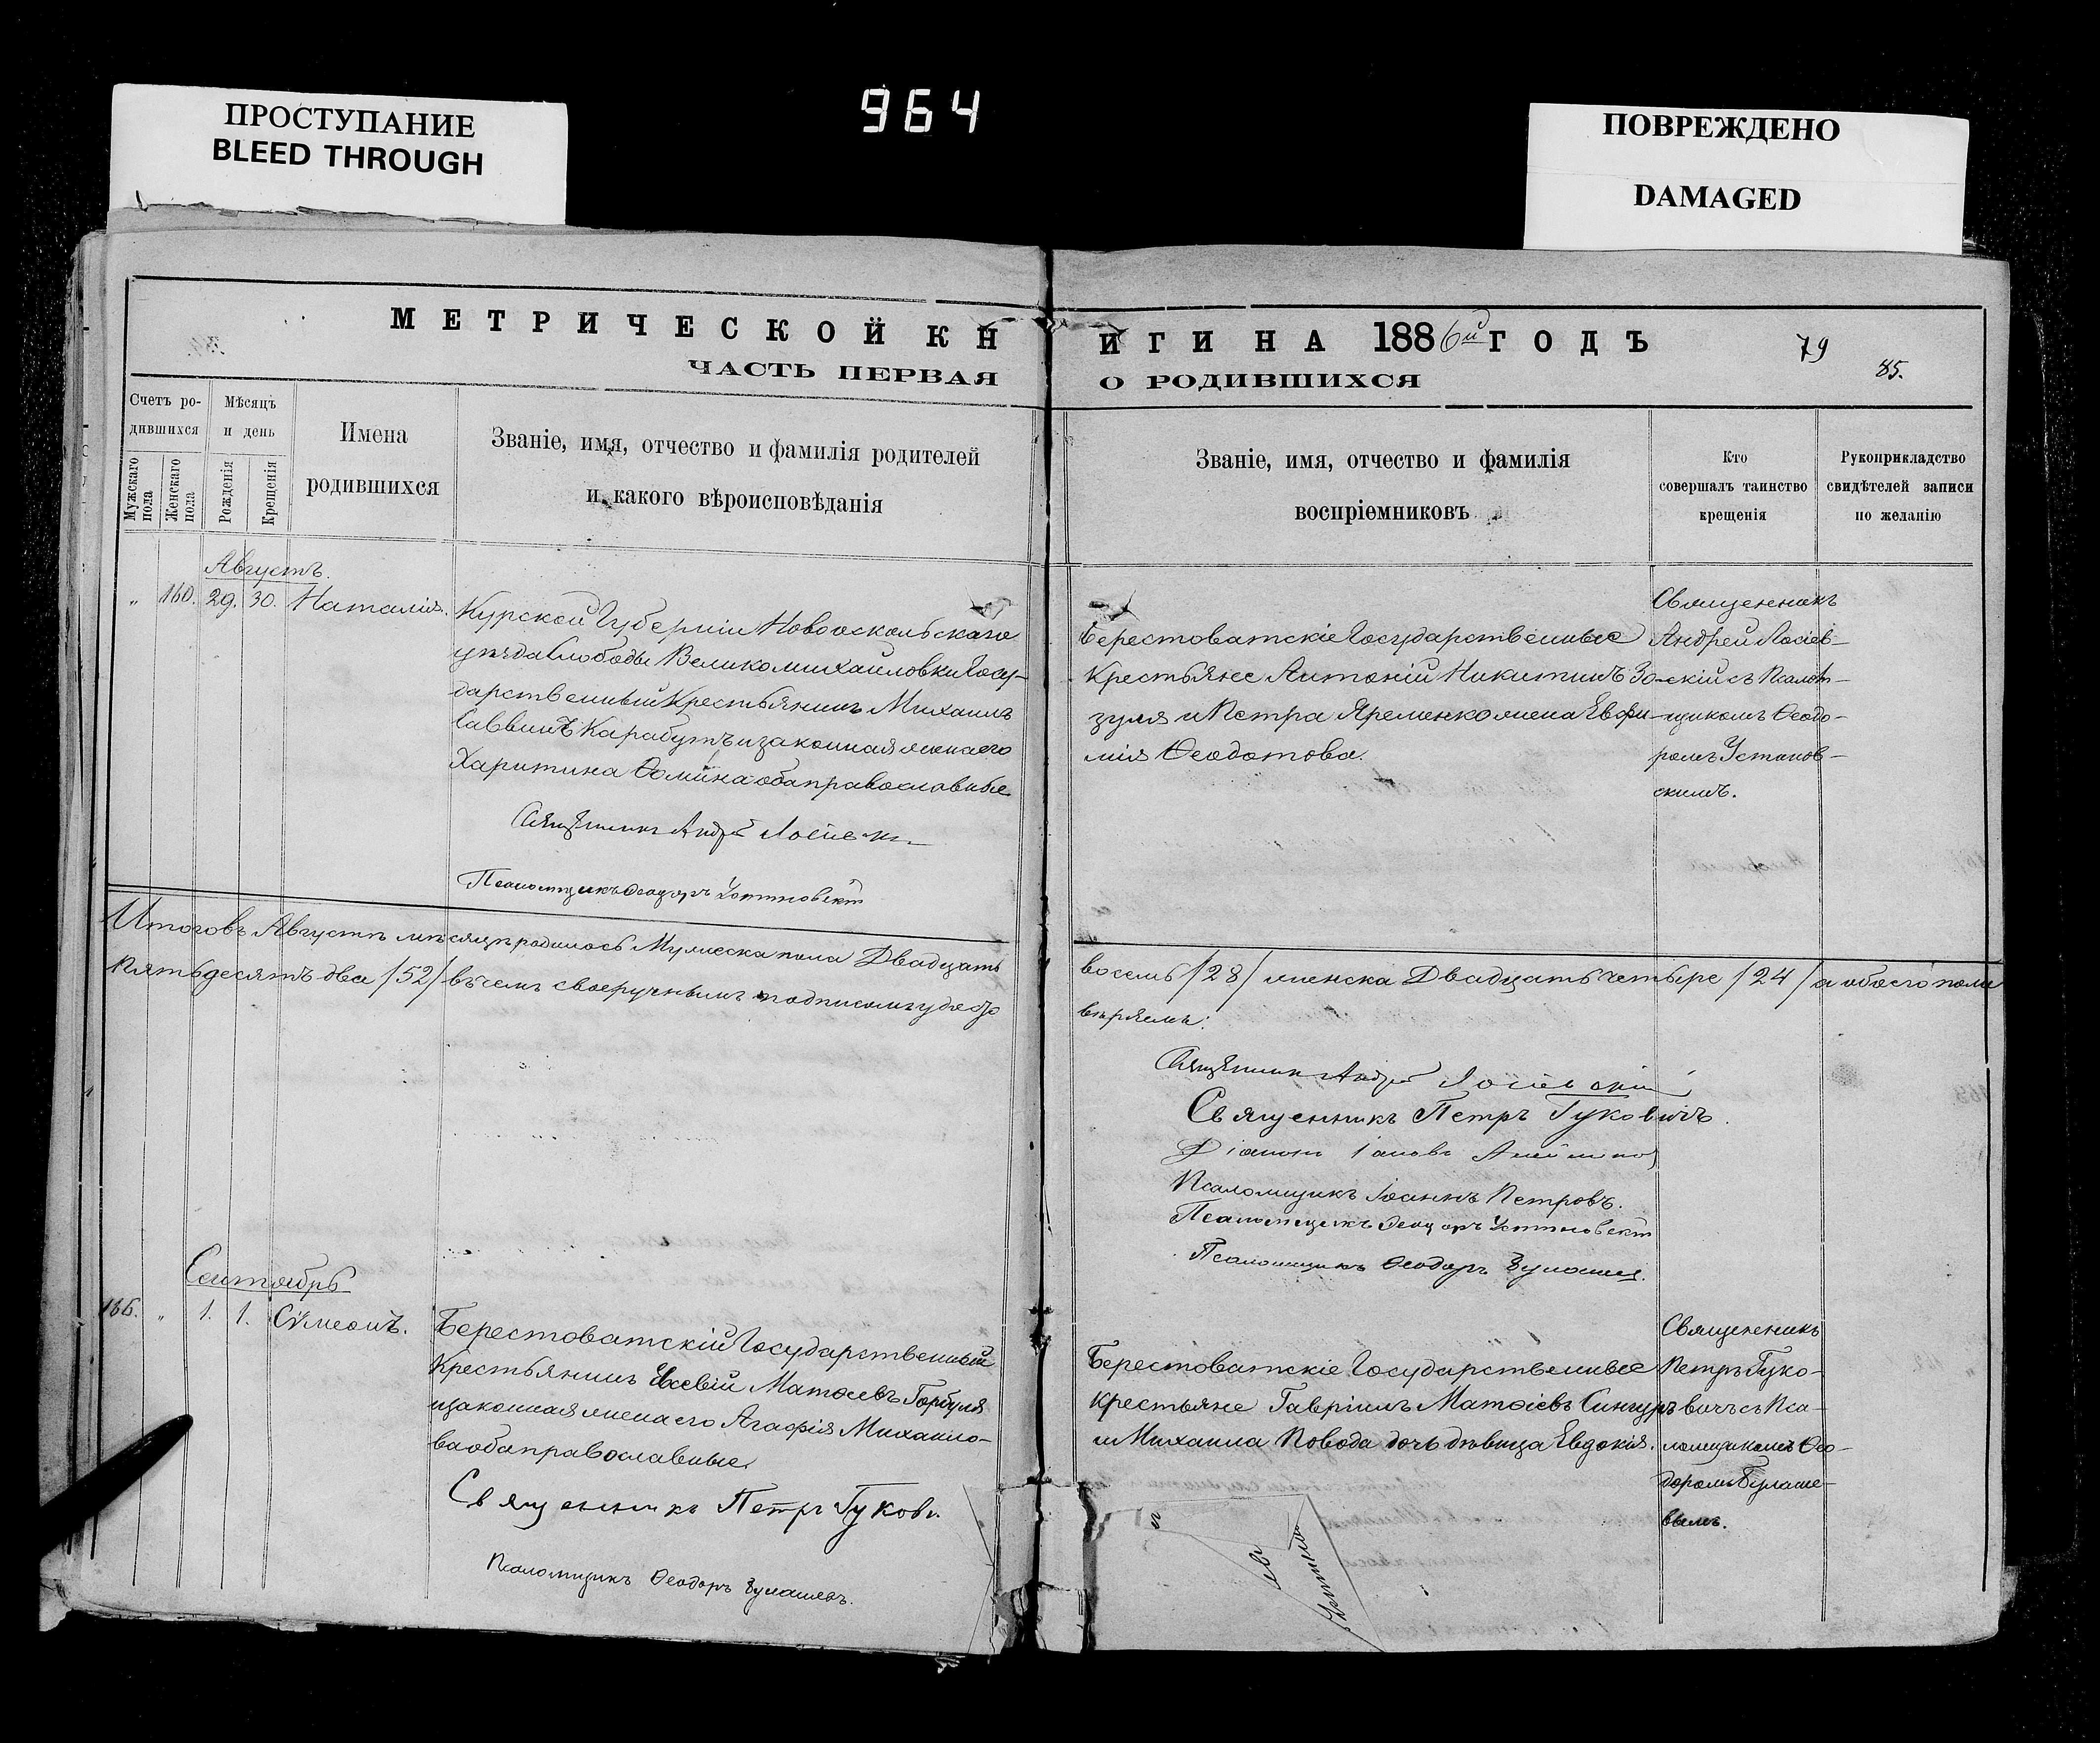 ПРОСТУПАНИЕ
BLEED THROUGH
964
ПОВРЕЖДЕНО
DAMAGED
МЕТРИЧЕСКОЙ КН
ИГИ НА 1886й ГОДЪ
79
85.
ЧАСТЬ ПЕРВАЯ
О РОДИВШИХСЯ
Счетъ ро-
дившихся
Мужскаго пола
Женскаго пола
Мѣсяцъ
и день
Рожденія
Крещенія
Имена
родившихся
Званіе, имя, отчество и фамилія родителей
и какого вѣроисповѣданія
Званіе, имя, отчество и фамилія
воспріемниковъ
Кто
совершалъ таинство
крещенія
Рукоприкладство
свидѣтелей записи
по желанію
Августъ.
„ 160. 29. 30. Наталія.
Курской Губерніи Новооскольскаго
уѣзда Слободы Великомихайловки Госу-
дарственный Крестьянинъ Михаилъ
Саввинъ Карабутъ и законная жена его
Харитина Ѳомина оба православные
Священникъ Андрей Лосіевскі
Псаломщикъ Ѳеодоръ Устиновскій
Берестоватскіе Государственные
Крестьяне Антоній Никитинъ Зо-
зуля и Петра Яременко жена Евфи-
мія Ѳеодотова.
Священникъ
Андрей Лосіев-
скій съ Псалом-
щикомъ Ѳеодо-
ромъ Устинов-
скимъ.
Итого въ Августѣ мѣсяцѣ родилось Мужеска пола Двадцать
восемь /28/ женска Двадцать четыре /24/ а обоего пола
Пятьдесятъ два /52/ въ чемъ своеручнымъ подписомъ удосто
вѣряемъ:
Священникъ Андрей Лосіевскій
Священникъ Петръ Гуковичъ.
Псаломщикъ Іоаннъ Петровъ.
Псаломщикъ Ѳеодоръ Устиновскій
Псаломщикъ Ѳеодоръ Булашев.
Сентябрь
186. „ 1. 1. Сѵмеонъ.
Берестоватскій Государственный
Крестьянинъ Евсевій Матѳіевъ Горбуля
и законная жена его Агафія Михаило-
ва оба православные.
Священникъ Петръ Гукови.
Псаломщикъ Ѳеодоръ Булашевъ.
Берестоватскіе Государственные
Крестьяне Гавріилъ Матѳіевъ Сингуръ
и Михаила Повода дочь дѣвица Евдокія.
Священникъ
Петръ Гуко-
вичъ съ Пса-
ломщикомъ Ѳео-
доромъ Булаше-
вымъ.